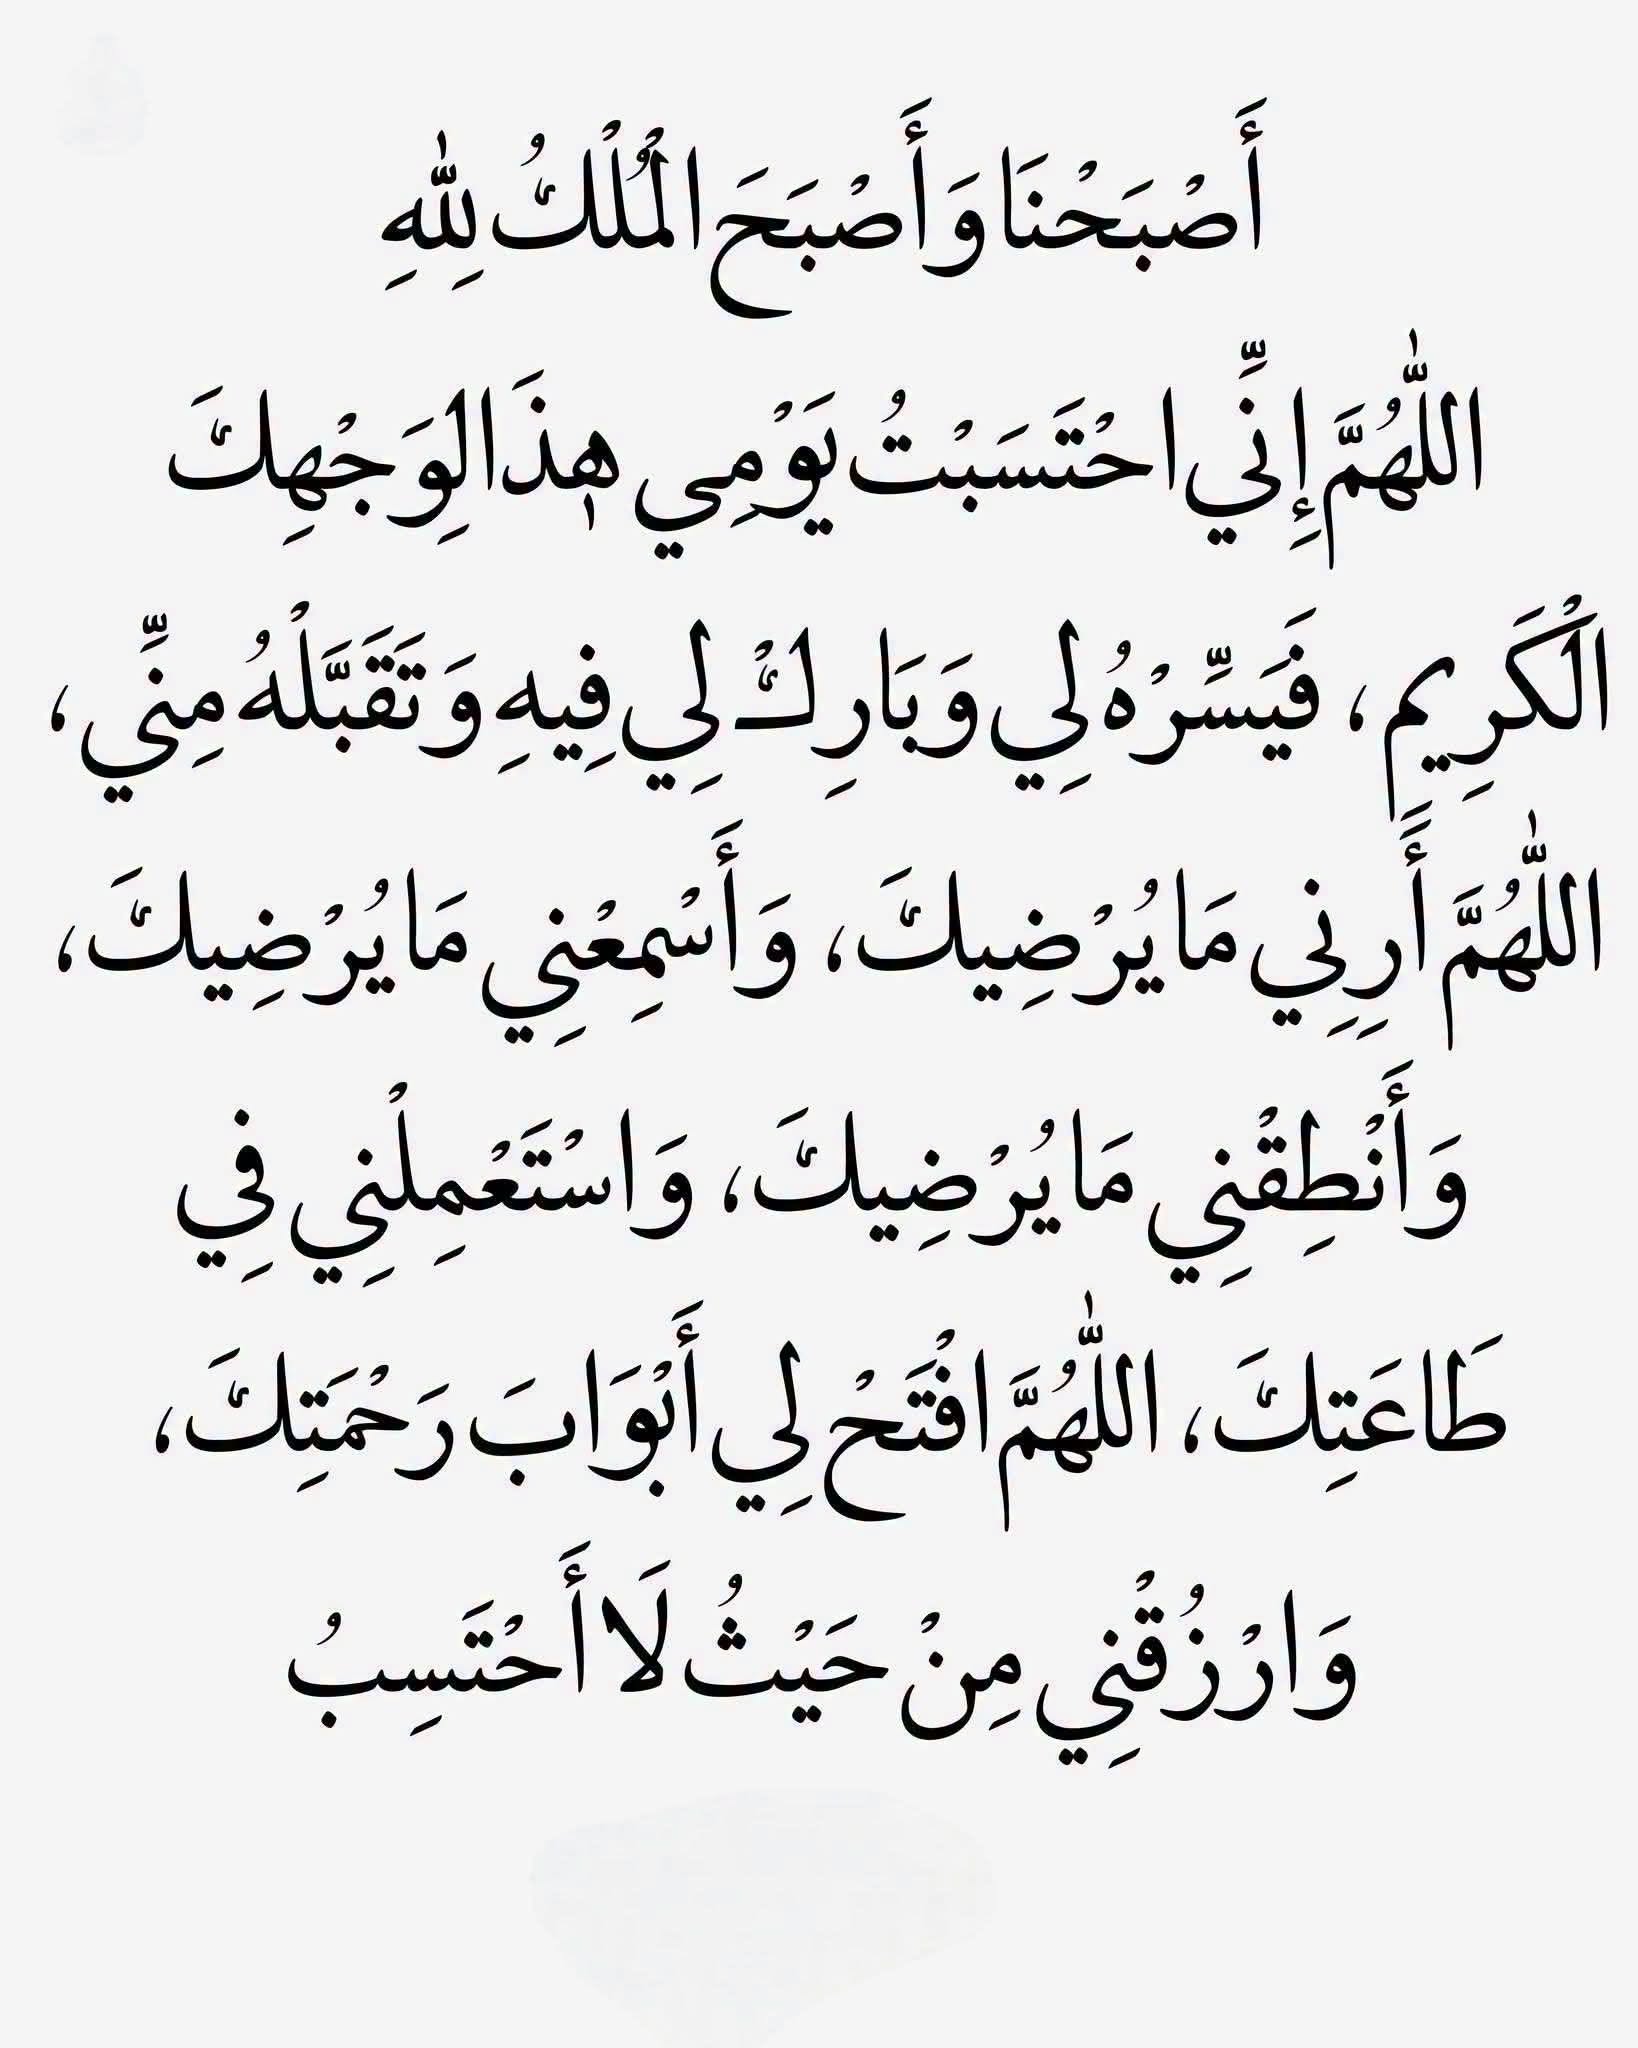 أَصْبَحْنَا وَأَصْبَحَ الْمُلْكُ لِلّٰهِ
اللّٰهُمَّ إِنِّي احْتَسَبْتُ يَوْمِي هٖذَا لِوَجْهِكَ
الْكَرِيم، فَيَسِّرْهُ لِي وَبَارِكْ لِي فِيهِ وَتَقَبَّلْهُ مِنِّي،
اللّٰهُمَّ أَرِنِي مَا يُرْضِيكَ، وَأَسْمِعْنِي مَا يُرْضِيكَ،
وَأَنْطِقْنِي مَا يُرْضِيكَ، وَاسْتَعْمِلْنِي فِي
طَاعَتِكَ، اللّٰهُمَّ افْتَحْ لِي أَبْوَابَ رَحْمَتِكَ،
وَارْزُقْنِي مِنْ حَيْثُ لَا أَحْتَسِبُ